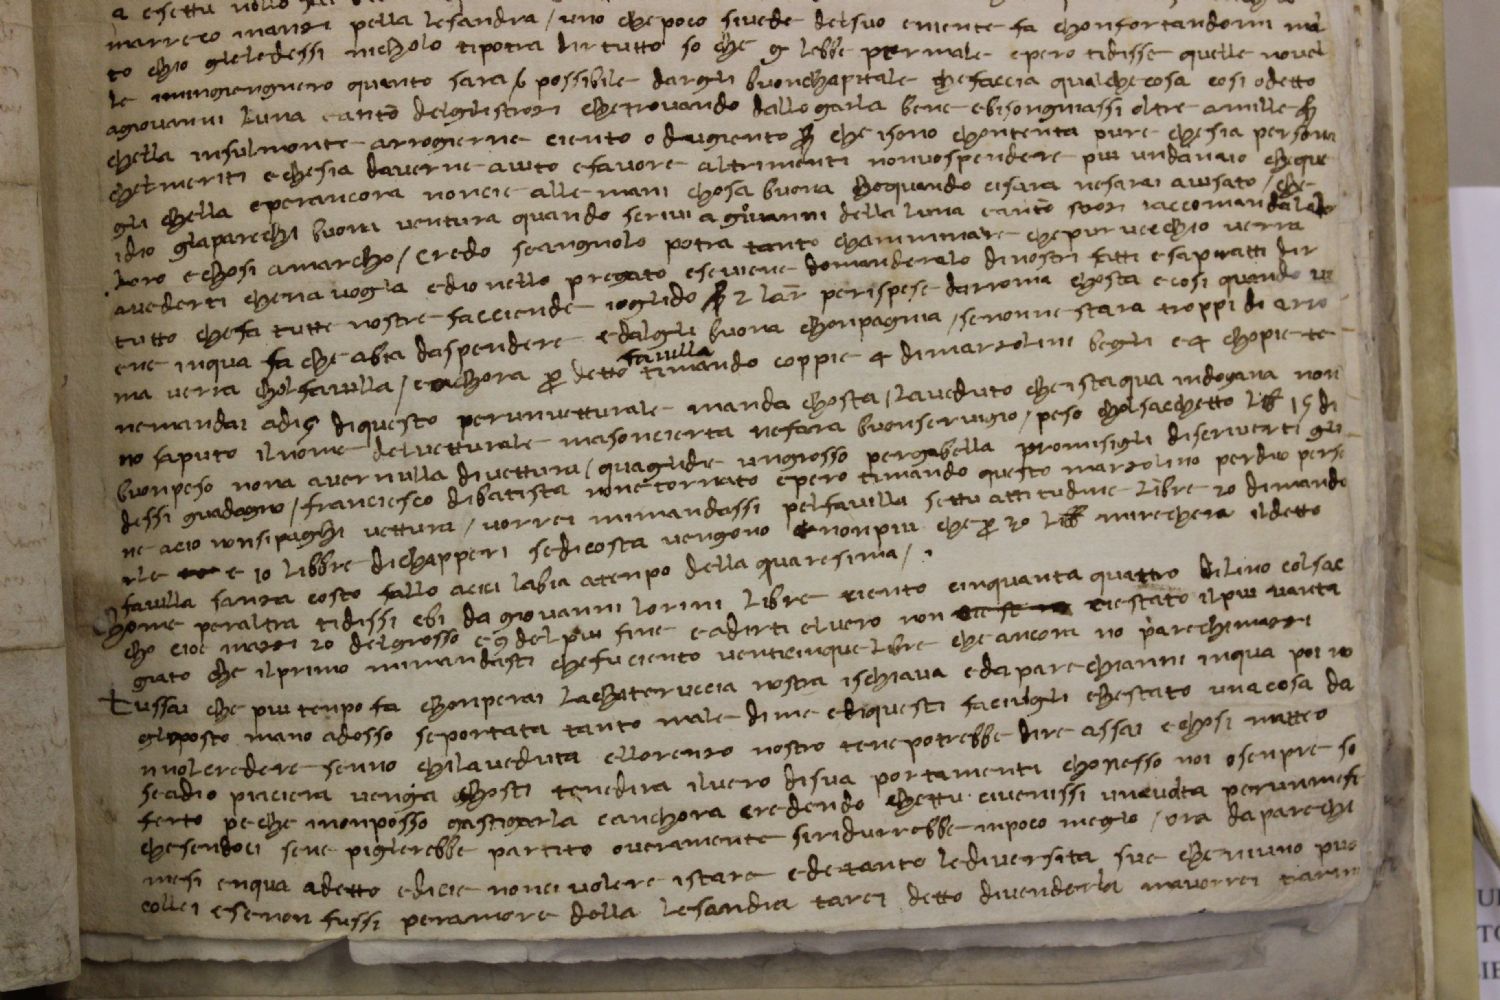 marreco mariti pella lesandra / uno che poco si vede del suo e mente fa chonfortandomi mal
to chio gleledessi nicholo ti potra dir tutto so che glebbe per male e pero ti disse quelle novel
le mingiengnero quanto sara possibile dargli buon chapitale che faccia qualche cosa cosi o detto
a giovanni luna e antonio degli strozi che trovando dallogarla bene e bisongniassi oltre a mille
chella insulmonte arrogierne ciento o dugiento che i sono chontenta pure che sia persona
chel meriti e che sia daverne aiuto e favore altrimenti non vo spendere piu un danaio
gli chella e per ancora non cie alle mani chosa buona quando ci sara ne sarai avisato / che
idio gliaparechi buona ventura quando scrivi a giovanni della luna e antonio strozi racomandala
loro e chosi a marcho / credo sc angnolo potra tanto chamminare che pur vechio verra
a vederti che na voglia ed io nello pregato e se viene domanderalo di nostri fatti e sapratti dir
tutto che fa tutte nostre facciende io gli do 2 lar per ispese da rroma chosta e cosi quando ve
ene in qua fa che abia da spendere e dalgli buona chonpagnia / se nonne stara troppi di a rro
ma verra chol favilla / e anchora per detto favilla ti mando coppie 4 di marzolini begli e 4 chopie te
ne mandai a di 5 di questo per un vetturale manda chosta / la veduto che ista qua in dogana non
no saputo il nome del vetturale ma son cierta ne fara buon servigio / peso chol sacchetto libbre 15 di
buon peso nona aver nulla di vettura / qua gli die un grosso per gabella promisigli di scriverti gli
dessi guadagno / franciesco di batista none tornato e pero ti mando questo marzolino perduo perse
ne acio non si paghi vettura / vorrei mi mandassi pel favilla settu attitudine libre 20 di mando
rle e 10 libbre di chapperi se di costa vengono e non piu che per 20 mi rechera il detto
favilla sanza costo fallo acci labia a tenpo della quaresima /
Chome per altra ti dissi ebi da giovanni lorini libre ciento cinquanta quattro di lino col sac
cho cioe mazzi 20 del grosso e 9 del piu fine e a dirti el vero non cie stato il piu vanta
giato che il primo mi mandasti che fu ciento venticinque libre che ancora no parechi mazzi
Tu ssai che piu tenpo fa chonperai la chateruccia nostra ischiava e da parechi anni in qua poi no
gli o posto mano adosso se portata tanto male di me e di questi faciugli che stato una cosa da
nnol credere senno chi la veduta e llorenzo nostro te ne potrebbe dire assai e chosi matteo
se a dio piaciera venga chosti te ne dira il vero di sua portamenti cho nesso noi o senpre so
ferto pe che i non posso gastigarla e anchora credendo chettu ci venissi una volta per un mese
che sendoci se ne piglierebbe partito overamente si ridurrebbe in poco meglio / ora da parechi
mesi en qua a detto e dicie nonci volere istare ed e tanto le diversita sue che niuno puo
collei e se non fussi per amore della lesandra tarei detto di venderla ma vorrei